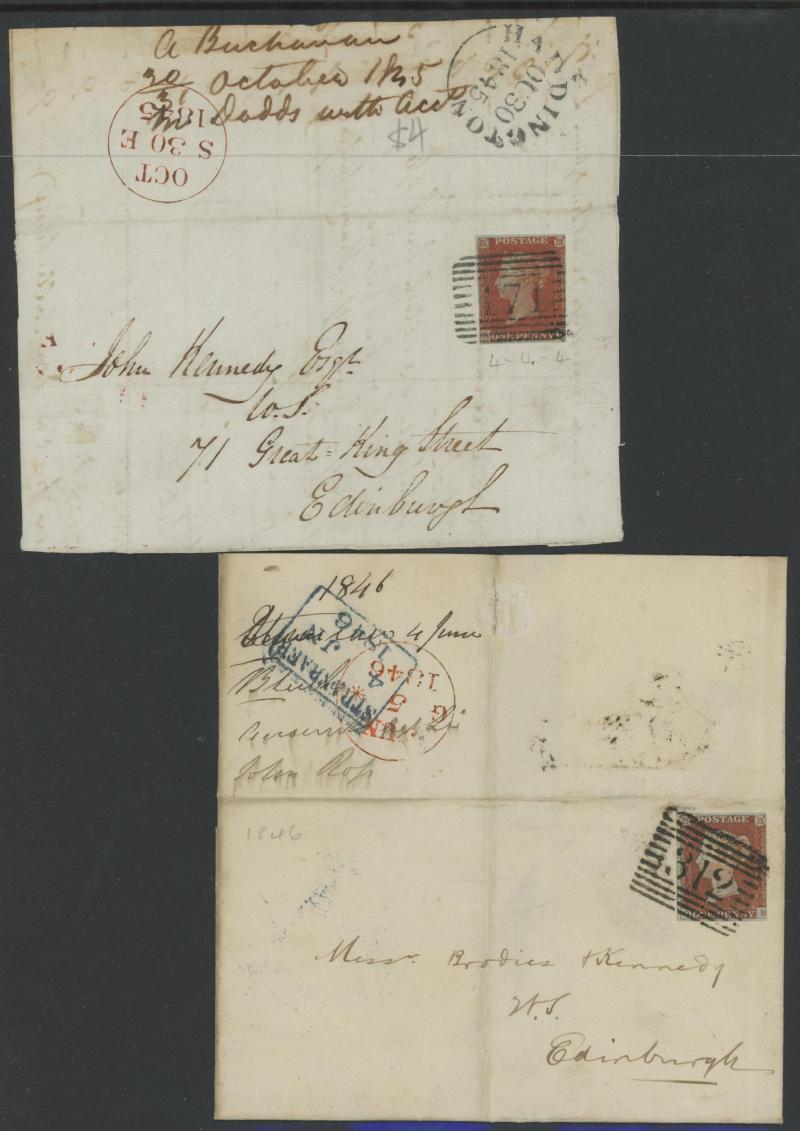 A Buchanan
30 October 1845
Dodds with Acct
$4
HADDINGTON
OC 30
1845
OCT
S 30 E
1845
POSTAGE
171
ONE PENNY
4-4-4
John Kennedy Esqr
W.S.
71 Great-King Street
Edinburgh
1846
4 June
STRANRAER
JU 4
1846
G
5
1846
John Ross
1846
POSTAGE
312
ONE PENNY
B
Messrs Brodies & Kennedy
W.S.
Edinburgh